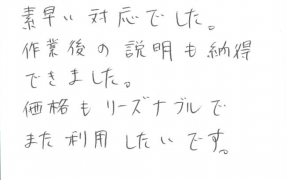 素早い対応でした。
作業後の説明も納得
できました。
価格もリーズナブルで
また利用したいです。